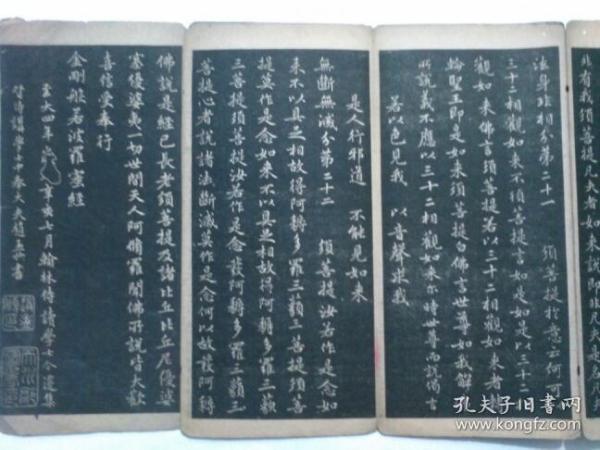 非有我須菩提凡夫者如来說即非凡夫是名凡夫
法身非相分第二十一 須菩提於意云何可
三十二相觀如来不須菩提言如是如是以三十二
觀如来佛言須菩提若以三十二相觀如来者轉
輪聖王即是如来須菩提白佛言世尊如我解
所說義不應以三十二相觀如来尔時世尊而說偈言
若以色見我 以音聲求我
是人行邪道 不能見如来
無斷無滅分第二十二 須菩提汝若作是念如
来不以具足相故得阿耨多羅三藐三菩提須菩
提莫作是念如来不以具足相故得阿耨多羅三藐
三菩提須菩提汝若作是念發阿耨多羅三藐三
菩提心者說諸法斷滅莫作是念何以故發阿耨
佛說是經已長老須菩提及諸比丘比丘尼優婆
塞優婆夷一切世間天人阿脩羅聞佛所說皆大歡
喜信受奉行
金剛般若波羅蜜經
至大四年歲辛亥七月翰林侍讀學士今遷集
賢侍講學士中奉大夫趙孟頫書
孔夫子旧书网
www.kongfz.com